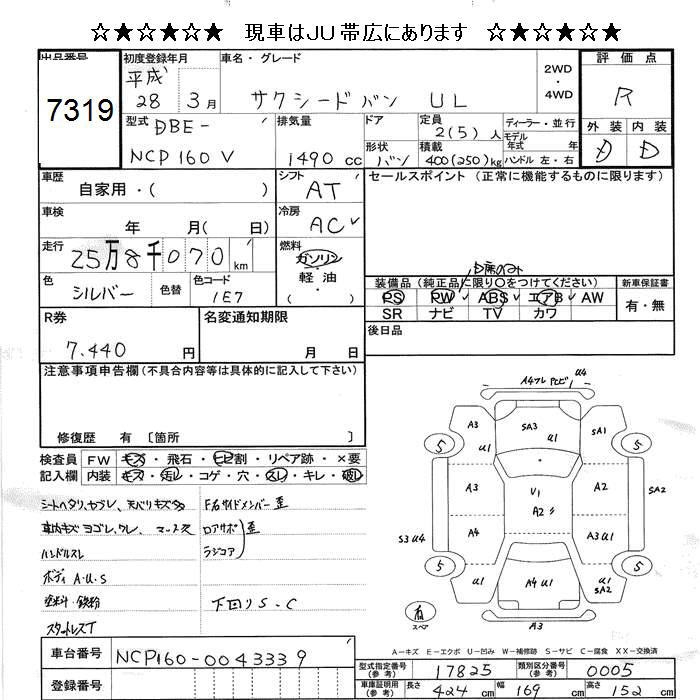 ☆★☆★☆★ 現車はJU帯広にあります ☆★☆★☆★
出品番号
7319
初度登録年月
平成
28 3月
車名・グレード
サクシードバン UL
2WD
・
4WD
評価点
R
外装 内装
D D
型式 DBE-
NCP160V
排気量
1490 cc
ドア
形状
バン
定員
2(5)人
積載
400(250)kg
ディーラー・並行
モデル
年式 年
ハンドル 左・右
車歴
自家用・( )
シフト
AT
車検
年 月( 日)
冷房
AC✓
走行
25万8千070km
燃料
ガソリン
・
軽油
・
( )
色
シルバー
色替
色コード
1E7
セールスポイント(正常に機能するものに限ります)
装備品(純正品に限り○をつけてください)
PS PW✓ ABS✓ エアB✓ AW
SR ナビ TV カワ
新車保証書
有・無
後日品
R券
7.440 円
名変通知期限
月 日
注意事項申告欄(不具合内容等は具体的に記入して下さい)
修復歴 有 〔箇所 〕
検査員
記入欄
FW キズ・飛石・ヒビ割・リペア跡・×要
内装 キズ・汚レ・コゲ・穴・スレ・キレ・破レ
シートヘタリ、ヤブレ、天バリキズ
車内キズ ヨゴレ、ワレ、
ハンドルスレ
ボディ A.U.S
塗料・鉄粉
スタットレスT
F右サイドメンバー歪
ロアサポ 歪
ラジコア
下回りS・C
車台番号 NCP160-0043339
登録番号
A4フレ U4
A3 U1
SA3 U1
SA1
5
5
A3
V1
A2
A2
SA2
A4
A3 U1
S3 U4
5
5
U1
A4 U1
U1 SA2
有
スペア
A3
A－キズ E－エクボ U－凹み W－補修跡 S－サビ C－腐食 XX－交換済
型式指定番号
(参考)
17825
類別区分番号
(参考)
0005
車庫証明用
(参考)
長さ 424 cm 幅 169 cm 高さ 152 cm